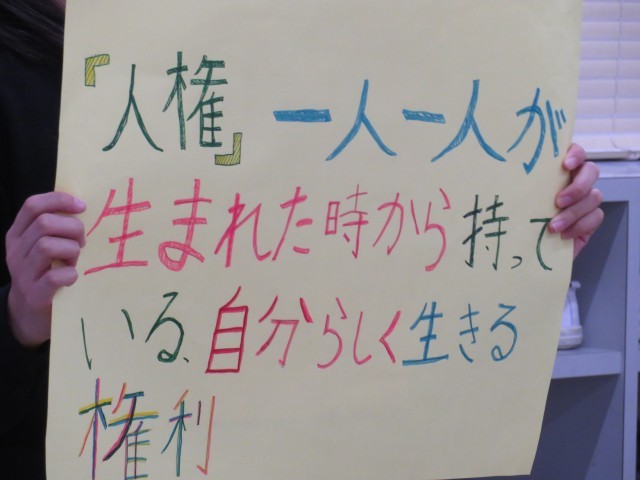 『人権』一人一人が
生まれた時から持って
いる、自分らしく生きる
権利